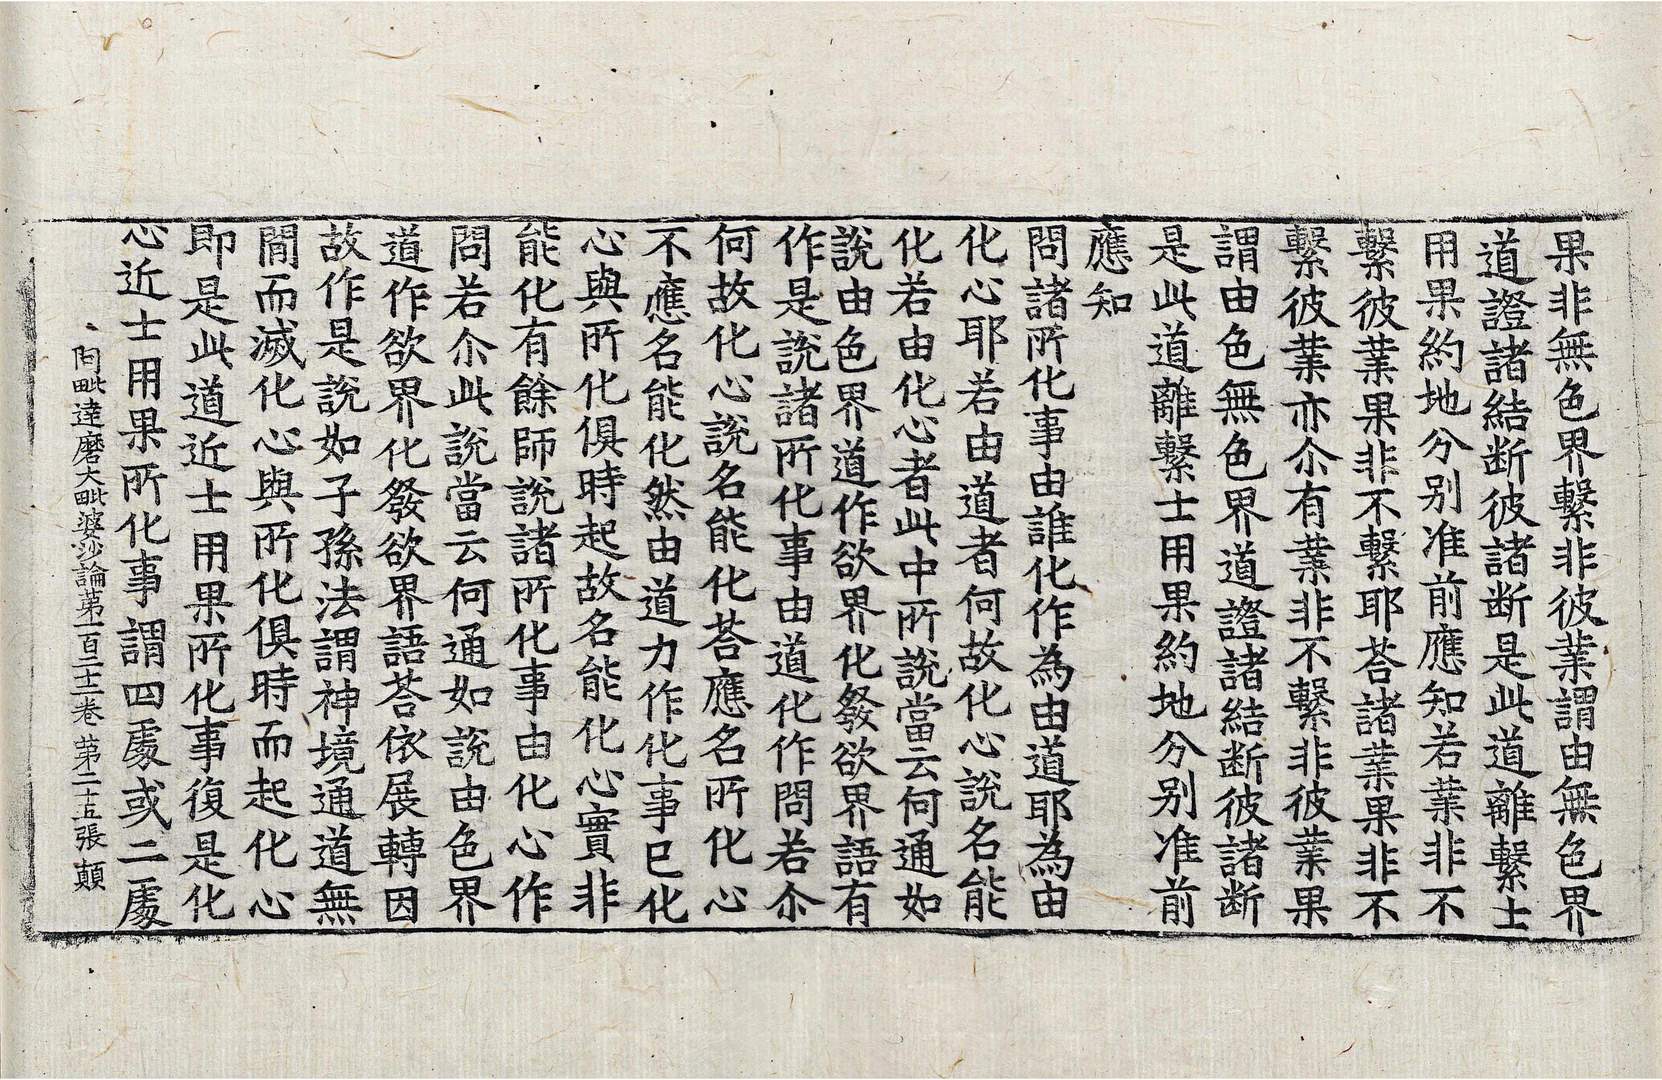 果非無色界繫非彼業謂由無色界
道證諸結断彼諸断是此道離繫士
用果約地分别准前應知若業非不
繫彼業果非不繫耶荅諸業果非不
繫彼業亦尒有業非不繫非彼業果
謂由色無色界道證諸結断彼諸断
是此道離繫士用果約地分别准前
應知
問諸所化事由誰化作為由道耶為由
化心耶若由道者何故化心說名能
化若由化心者此中所說當云何通如
說由色界道作欲界化發欲界語有
作是說諸所化事由道化作問若尒
何故化心說名能化荅應名所化心
不應名能化然由道力作化事已化
心與所化俱時起故名能化心實非
能化有餘師說諸所化事由化心作
問若尒此說當云何通如說由色界
道作欲界化發欲界語荅依展轉因
故作是說如子孫法謂神境通道無
閒而滅化心與所化俱時而起化心
即是此道近士用果所化事復是化
心近士用果所化事謂四處或二處
毗達磨大毗婆沙論第一百二十二卷 第二十五張 顛